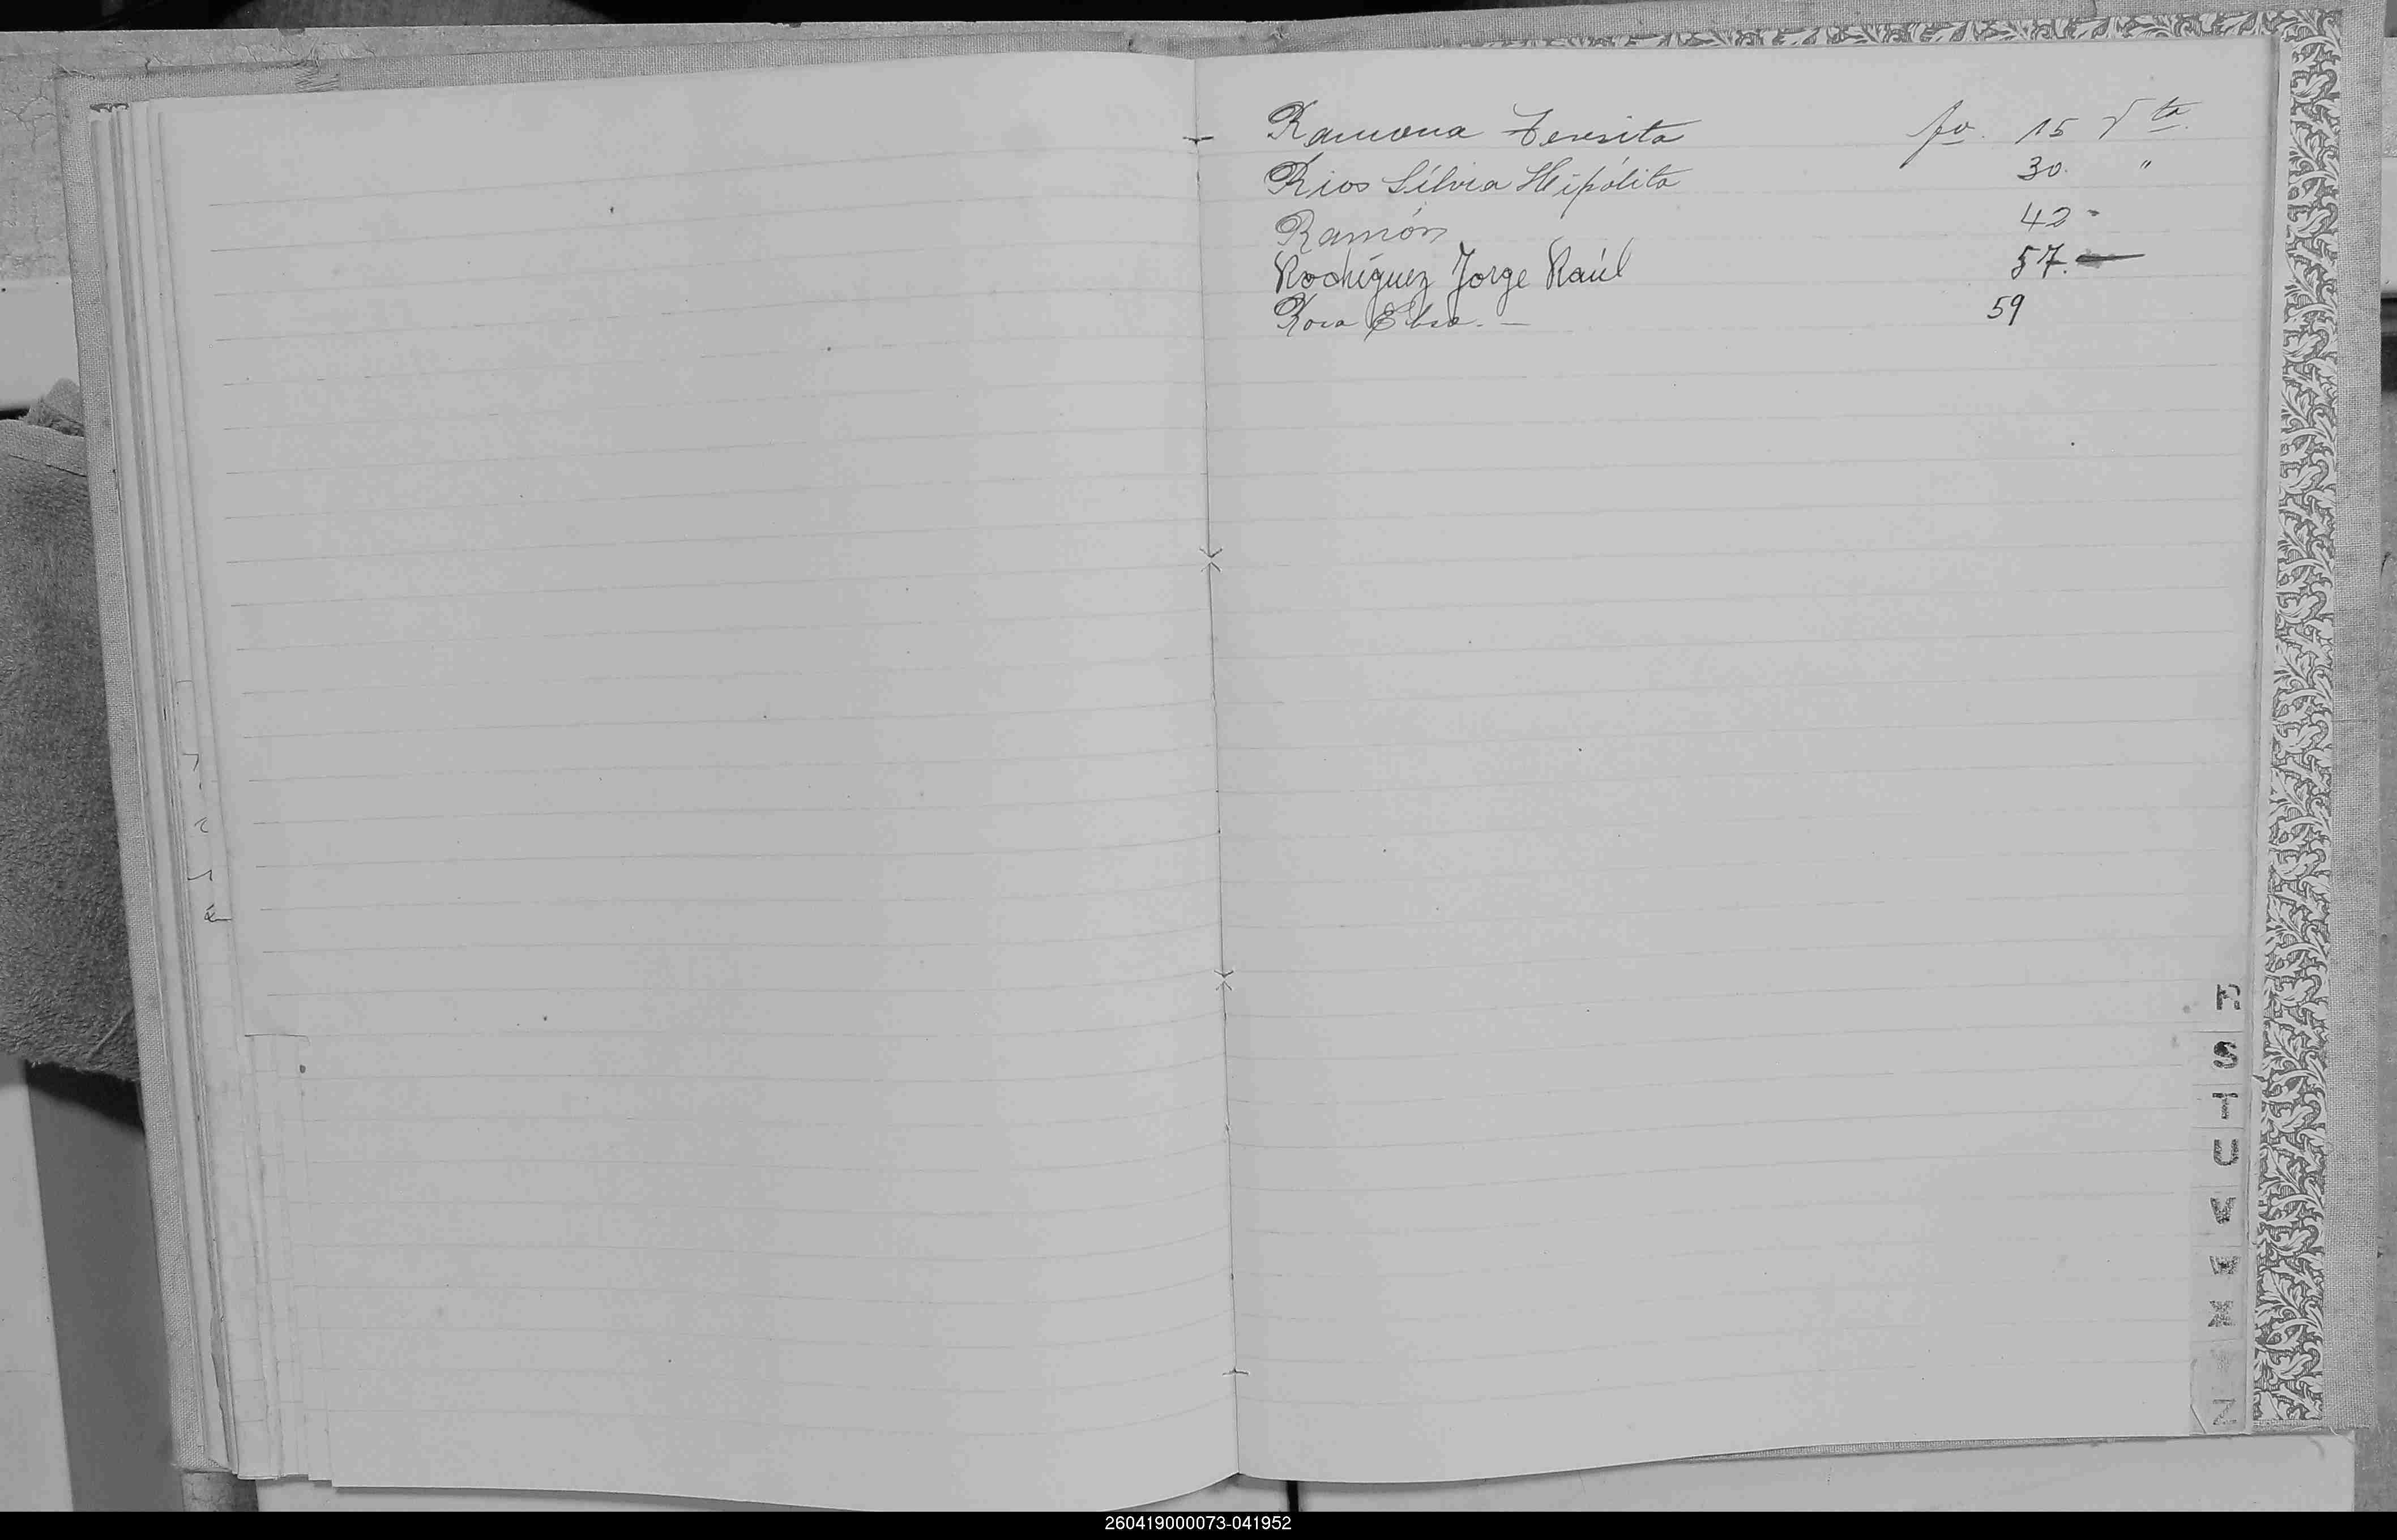 Ramona Teresita fo. 15 Vta.
Rios Silvia Hipólita 30. "
Ramón 42 -
Rodríguez Jorge Raúl 57. —
Rosa Elsa. — 59
R
S
T
U
V
W
X
Y
Z
260419000073-041952